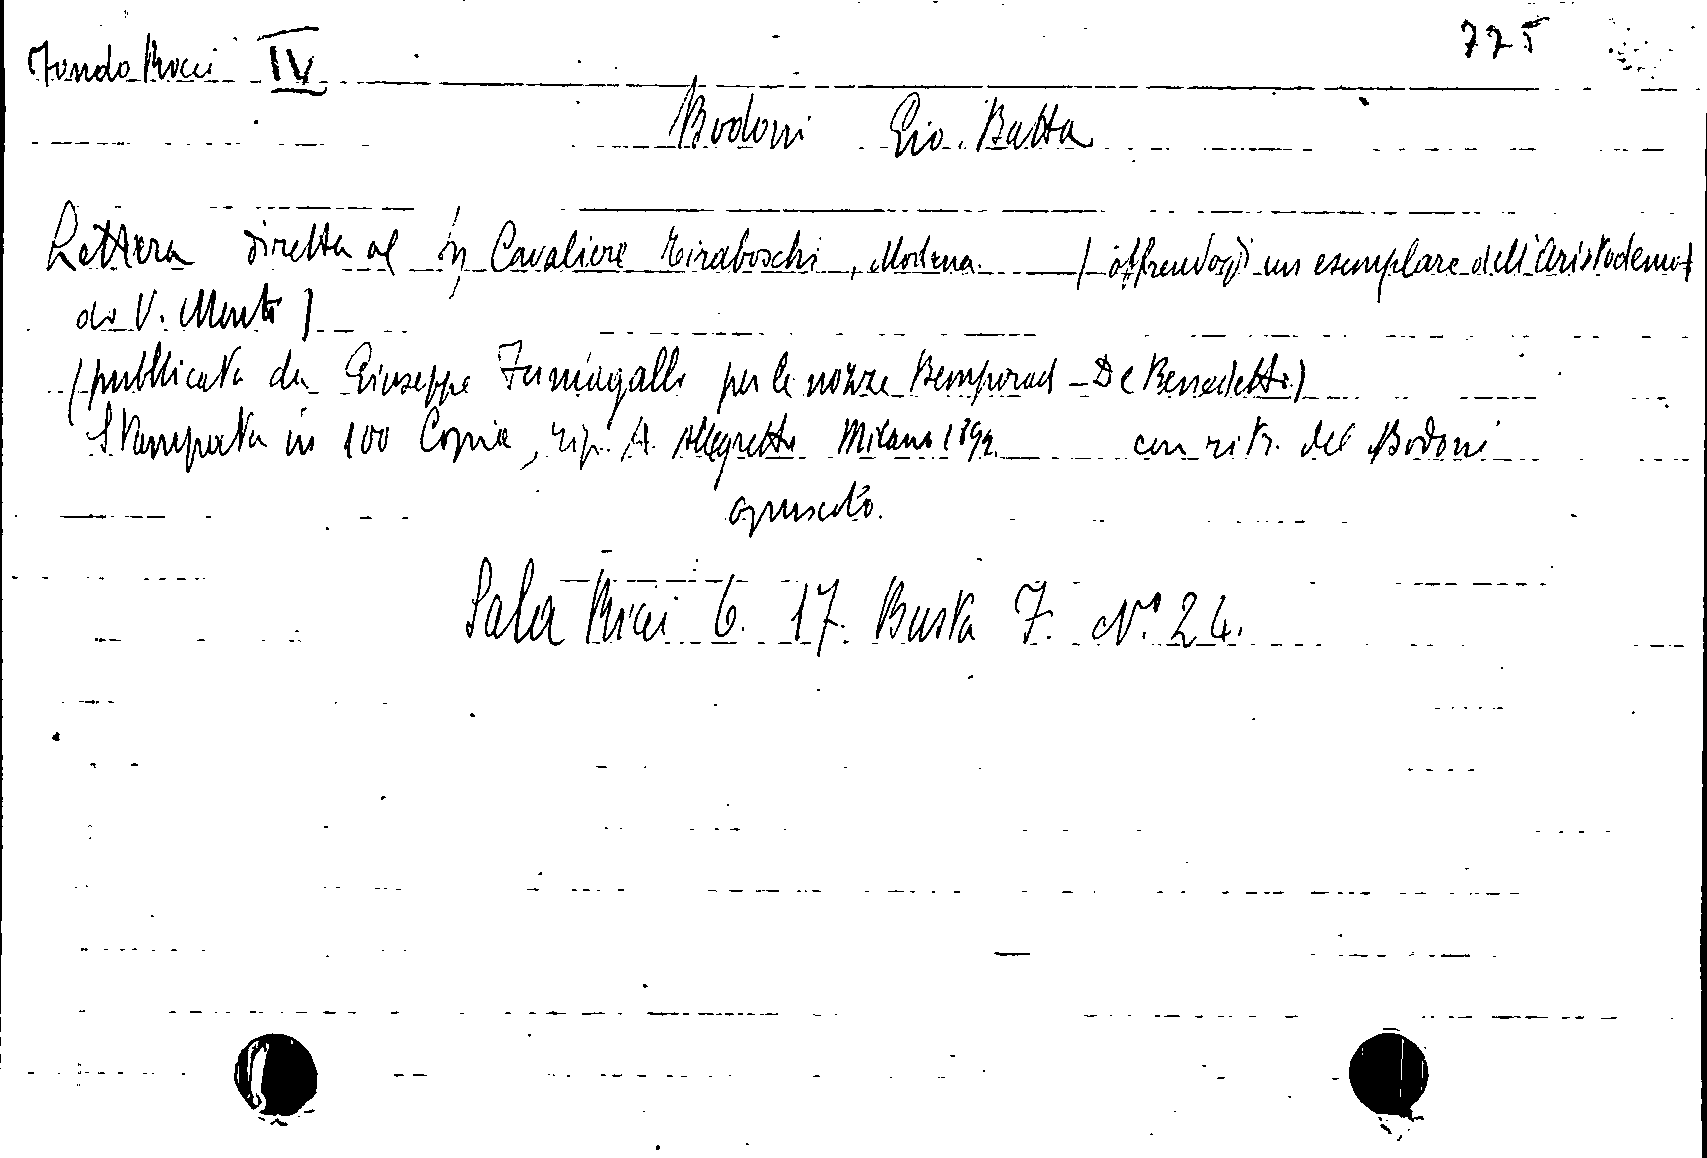 Fondo Ricci IV
775
Bodoni Gio. Batta
Lettera diretta al Sig. Cavaliere Tiraboschi, Modena. (offrendogli un esemplare dell'Aristodemo
di V. Monti)
(pubblicata da Giuseppe Fumagalli per le nozze Bemporad - De Benedetti)
Stampata in 100 Copie, tip. A. Allegretti Milano 1892 con ritr. del Bodoni
opuscolo.
Sala Ricci 6. 17. Busta 7. N.° 24.